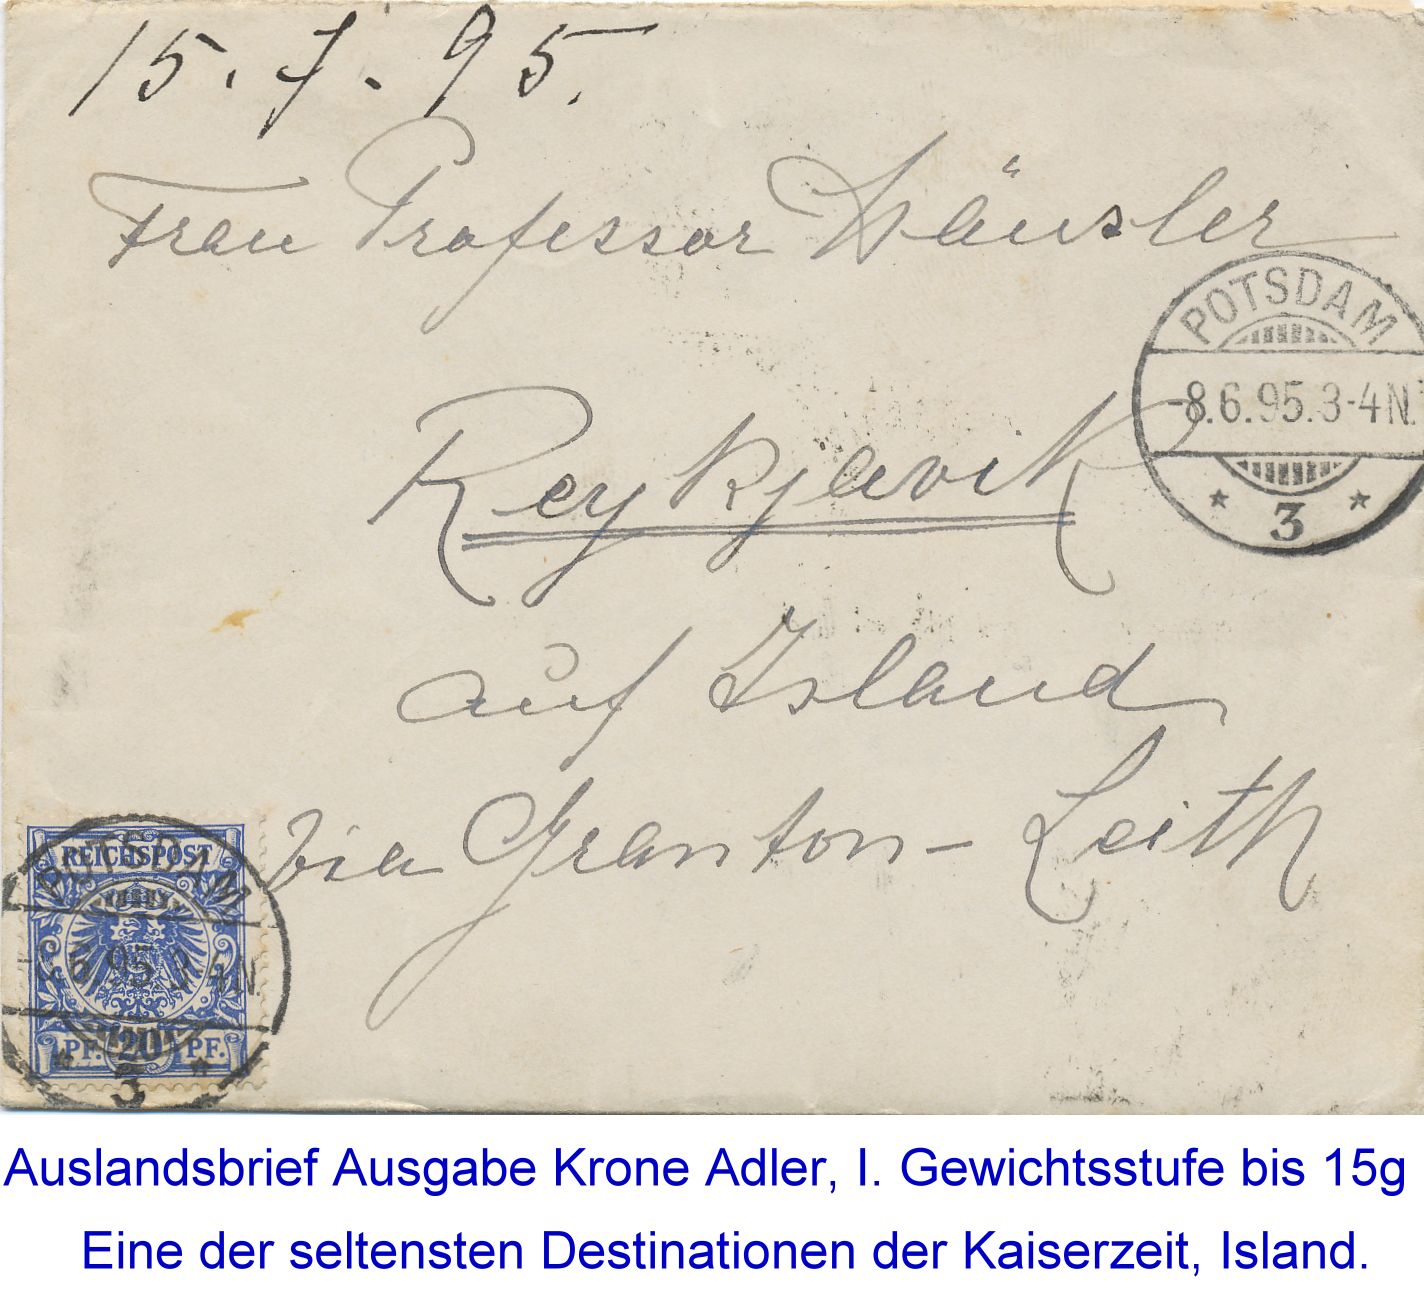 15. 7. 95.
Frau Professor
POTSDAM
-8.6.95.3-4N.
* 3 *
Reykjavik
auf Island
via Granton - Leith
REICHSPOST
POTSDAM
6.95.3-4N.
PF. 20 PF.
* 3 *
Auslandsbrief Ausgabe Krone Adler, I. Gewichtsstufe bis 15g
Eine der seltensten Destinationen der Kaiserzeit, Island.